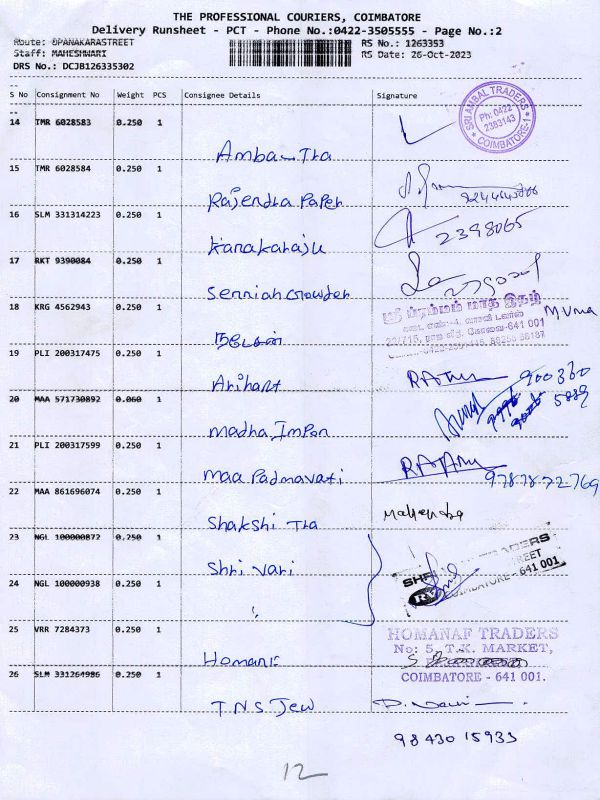 THE PROFESSIONAL COURIERS, COIMBATORE
Delivery Runsheet - PCT - Phone No.:0422-3505555 - Page No.:2
Route: OPANAKARASTREET
RS No.: 1263353
Staff: MAHESHWARI
RS Date: 26-Oct-2023
DRS No.: DCJB126335302
S No Consignment No Weight PCS Consignee Details Signature
14 TMR 6028583 0.250 1
SRI AMBAL TRADERS
Ph: 0422
2383143
COIMBATORE-1
Amba Tra
15 TMR 6028584 0.250 1
Rajendra Paper
16 SLM 331314223 0.250 1
2398065
Kanakaraju
17 RKT 9390084 0.250 1
Senniah Gowder
18 KRG 4562943 0.250 1
ஸ்ரீ பிரம்மம் மாத இதழ்
641 001
நடேசன்
19 PLI 200317475 0.250 1
Arihant
20 MAA 571730892 0.060 1
Madha Impon
21 PLI 200317599 0.250 1
9787872769
Maa Padmavati
22 MAA 861696074 0.250 1
Mahendra
Shakshi Tra
23 NGL 100000872 0.250 1
TRADERS
STREET
COIMBATORE - 641 001.
Shri Vari
24 NGL 100000938 0.250 1
25 VRR 7284373 0.250 1
HOMANAF TRADERS
No: 5, T.K. MARKET,
COIMBATORE - 641 001.
Homanf
26 SLM 331264986 0.250 1
TNS Jew
98430 15933
12